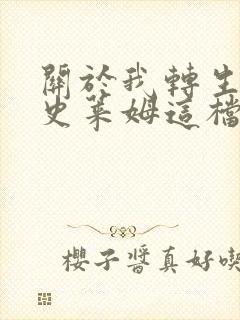 關於我轉生
史萊姆這檔
櫻子醬真好喫